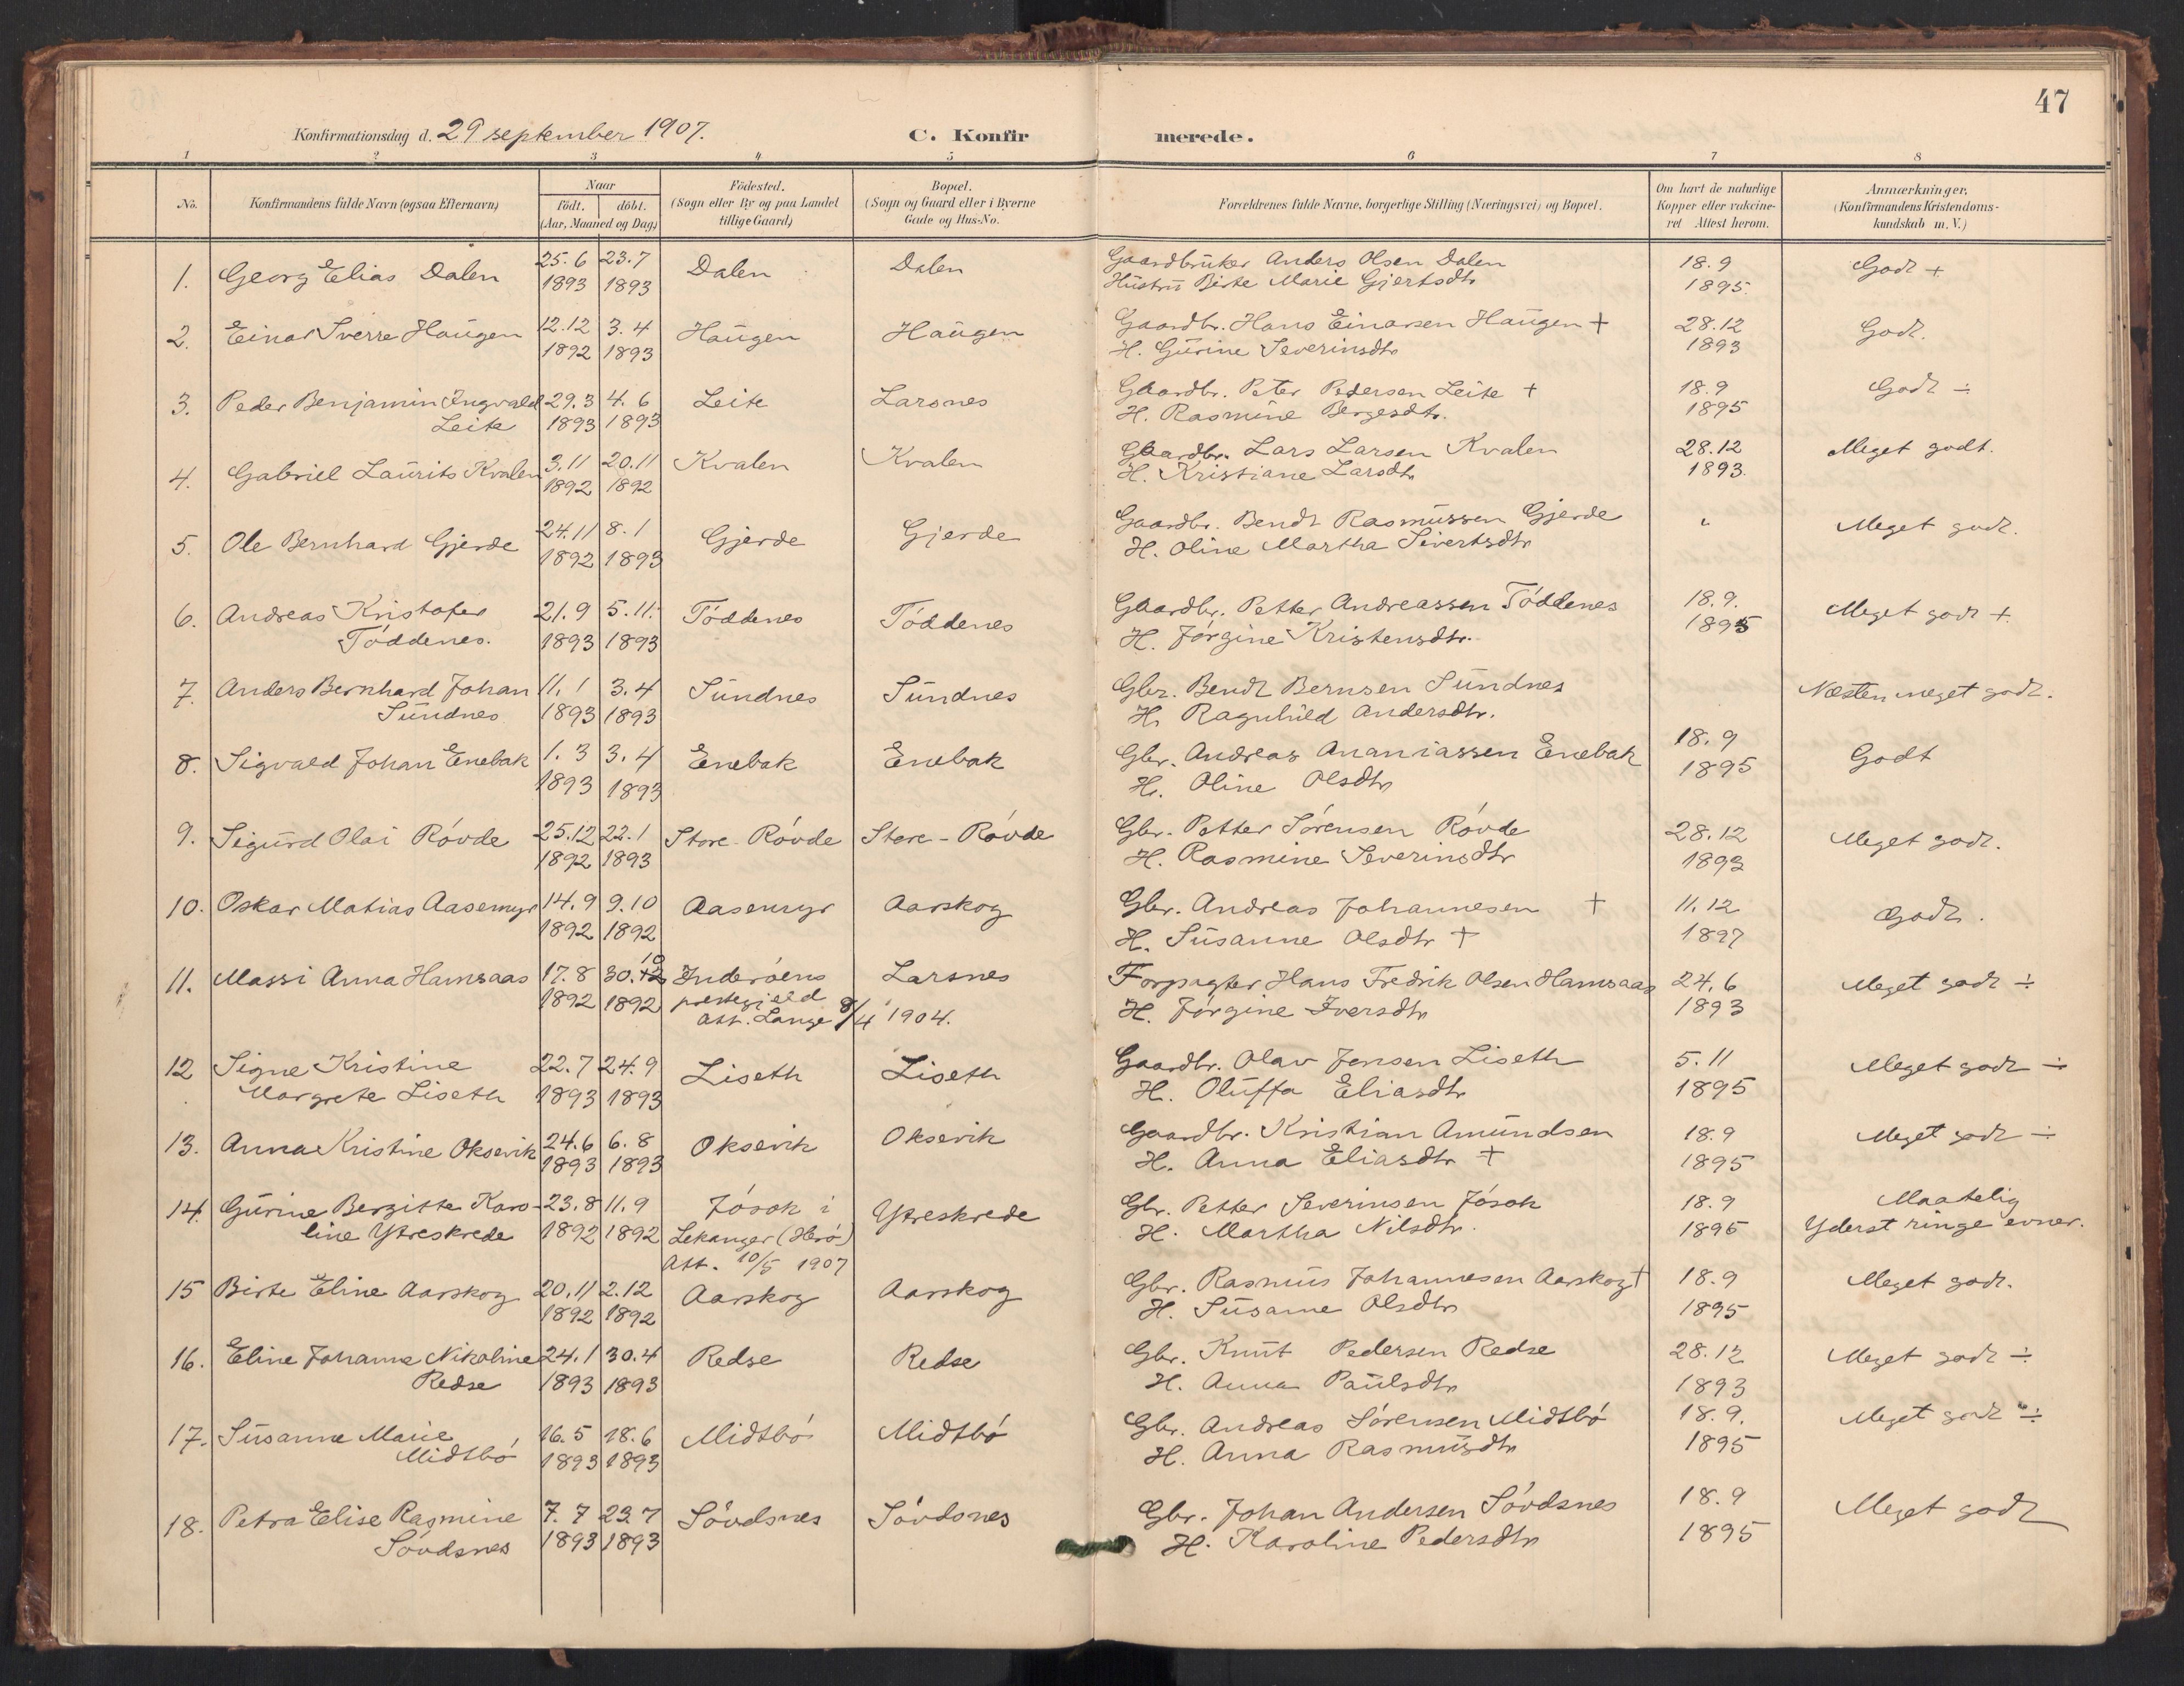 47
Konfirmationsdag d. 29 september 1907. C. Konfirmerede.
1 2 3 4 5 6 7 8
No. Konfirmandens fulde Navn (ogsaa Efternavn) Naar födt. döbt. (Aar, Maaned og Dag) Födested. (Sogn eller By og paa Landet tillige Gaard) Bopæl. (Sogn og Gaard eller i Byerne Gade og Hus-No. Forældrenes fulde Navne, borgerlige Stilling (Næringsvei) og Bopæl. Om havt de naturlige Kopper eller vakcineret Attest herom. Anmærkninger. (Konfirmandens Kristendomskundskab m. V.)
1. Georg Elias Dalen 25.6 23.7 Dalen Dalen Gaardbruker Anders Olsen Dalen 18.9 Godt +
1893 1893 Hustru Birte Marie Gjertsdtr 1895.
2. Einar Sverre Haugen 12.12 3.4 Haugen Haugen Gaardbr. Hans Einarsen Haugen + 28.12 Godt.
1892 1893 H. Gurine Severinsdtr 1893
3. Peder Benjamin Ingvald 29.3 4.6 Leite Larsnes Gaardbr. Peter Pedersen Leite + 18.9 Godt ÷
Leite 1893 1893 H. Rasmine Bergesdtr. 1895
4. Gabriel Laurits Kvalen 3.11 20.11 Kvalen Kvalen Gaardbr. Lars Larsen Kvalen 28.12 Meget godt.
1892 1892 H. Kristiane Larsdtr 1893.
5. Ole Bernhard Gjerde 24.11 8.1 Gjerde Gjerde Gaardbr. Bendt Rasmussen Gjerde " Meget godt.
1892 1893 H. Oline Martha Sivertsdtr
6. Andreas Kristofer 21.9 5.11. Töddenes Töddenes Gaardbr. Petter Andreassen Töddenes 18.9. Meget godt +
Töddenes. 1893 1893 H. Jörgine Kristensdtr. 1895
7. Anders Bernhard Johan 11.1 3.4 Sundnes Sundnes Gbr. Bendt Bernsen Sundnes Næsten meget godt.
Sundnes 1893 1893 H. Ragnhild Andersdtr.
8. Sigvald Johan Enebak 1.3 3.4 Enebak Enebak Gbr. Andreas Ananiassen Enebak 18.9 Godt
1893 1893 H. Oline Olsdtr 1895
9. Sigurd Olai Rövde 25.12 22.1 Store-Rövde Store-Rövde Gbr. Petter Sörensen Rövde 28.12 Meget godt.
1892 1893 H. Rasmine Severinsdtr 1893
10. Oskar Matias Aasemyr 14.9 9.10 Aasemyr Aarskog Gbr. Andreas Johannesen + 11.12 Godt.
1892 1892 H. Susanne Olsdtr + 1897
11. Massi Anna Hamsaas 17.8 30.10 Inderöens Larsnes Forpagter Hans Fredrik Olsen Hamsaas 24.6 Meget godt ÷
1892 1892 prestegjeld H. Jörgine Iversdtr 1893
Att. Lange 8/4 1904.
12 Signe Kristine 22.7 24.9 Liseth Liseth Gaardbr. Olav Jensen Liseth 5.11 Meget godt ÷
Margrete Liseth 1893 1893 H. Oluffa Eliasdtr 1895
13. Anna Kristine Oksevik 24.6 6.8 Oksevik Oksevik Gaardbr. Kristian Amundsen 18.9 Meget godt ÷
1893 1893 H. Anna Eliasdtr + 1895
14. Gurine Bergitte Karo- 23.8 11.9 Jösok i Ytreskrede Gbr. Petter Severinsen Jösok 18.9 Maatelig
line Ytreskrede 1892 1892 Lekanger (Herö) H. Martha Nilsdtr. 1895 Yderst ringe evner.
Att. 10/5 1907
15 Birte Eline Aarskog 20.11 2.12 Aarskog Aarskog Gbr. Rasmus Johannesen Aarskog + 18.9 Meget godt.
1892 1892 H. Susanne Olsdtr 1895
16. Eline Johanna Nikoline 24.1 30.4 Redse Redse Gbr. Knut Pedersen Redse 28.12 Meget godt ÷
Redse 1893 1893 H. Anna Paulsdtr 1893
17. Susanna Marie 16.5 18.6 Midtbö Midtbö Gbr. Andreas Sörensen Midtbö 18.9. Meget godt ÷
Midtbö 1893 1893 H. Anna Rasmusdtr 1895
18. Petra Elise Rasmine 7.7 23.7 Sövdsnes Sövdsnes Gbr. Johan Andersen Sövdsnes 18.9 Meget godt
Sövdsnes 1893 1893 H. Karoline Pedersdtr 1895